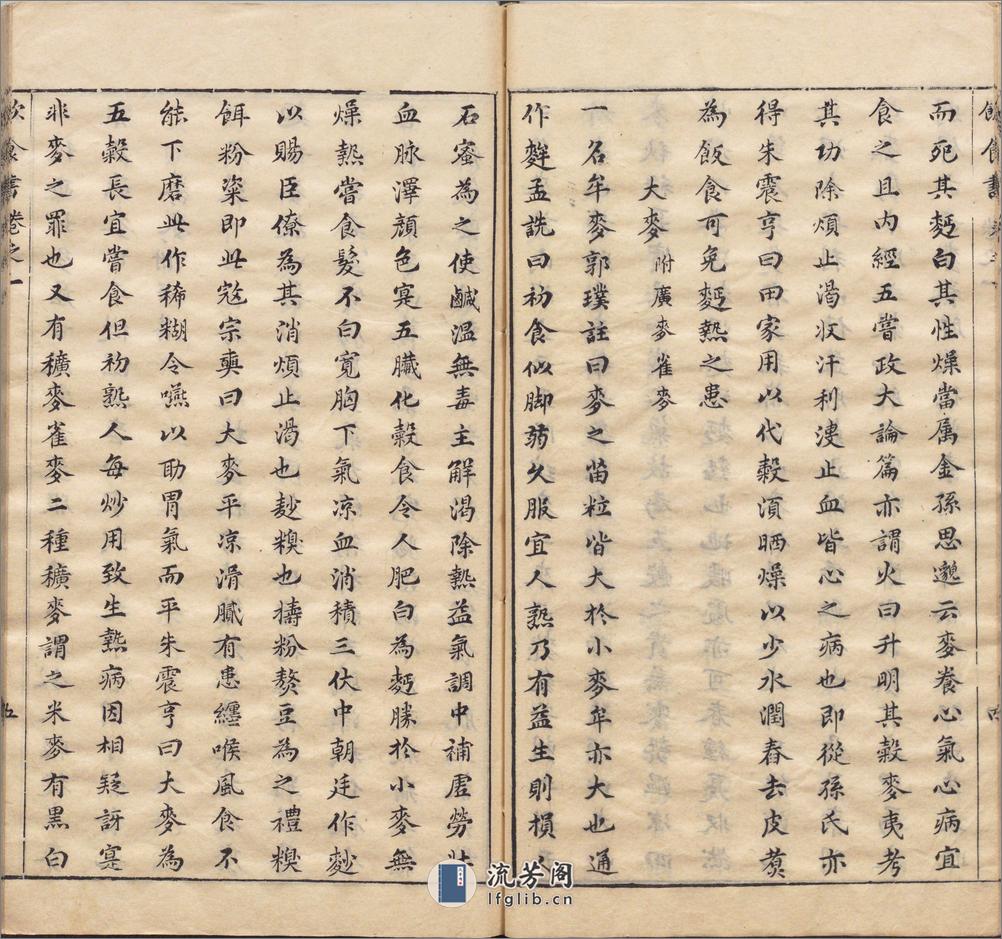 而死其麪白其性燥當属金孫思邈云麥養心氣心病宜
食之且内經五嘗政大論篇亦謂火曰升明其穀麥夷考
其功除煩止渴收汗利溲止血皆心之病也即從孫氏亦
得朱震亨曰田家用以代穀湏晒燥以少水潤舂去皮煑
為飯食可免麪熱之患
大麥 附廣麥雀麥
一名牟麥郭璞註曰麥之苗粒皆大於小麥牟亦大也通
作麰孟詵曰初食似脚弱久服宜人熟乃有益生則損
石蜜為之使鹹溫無毒主解渴除熱益氣調中補虛勞壯
血脉澤顔色寔五臟化穀食令人肥白為麪勝於小麥無
燥熱嘗食髮不白寬胸下氣凉血消積三伏中朝廷作麨
以賜臣僚為其消煩止渴也麨糗也擣粉熬豆為之禮糗
餌粉粢即此寇宗奭曰大麥平凉滑膩有患纏喉風食不
能下磨此作稀糊令嚥以助胃氣而平朱震亨曰大麥為
五穀長宜嘗食但初熟人每炒用致生熱病因相疑訝寔
非麥之罪也又有穬麥雀麥二種穬麥謂之米麥有黑白
飲食書卷之一
五
流芳阁
lfglib.cn